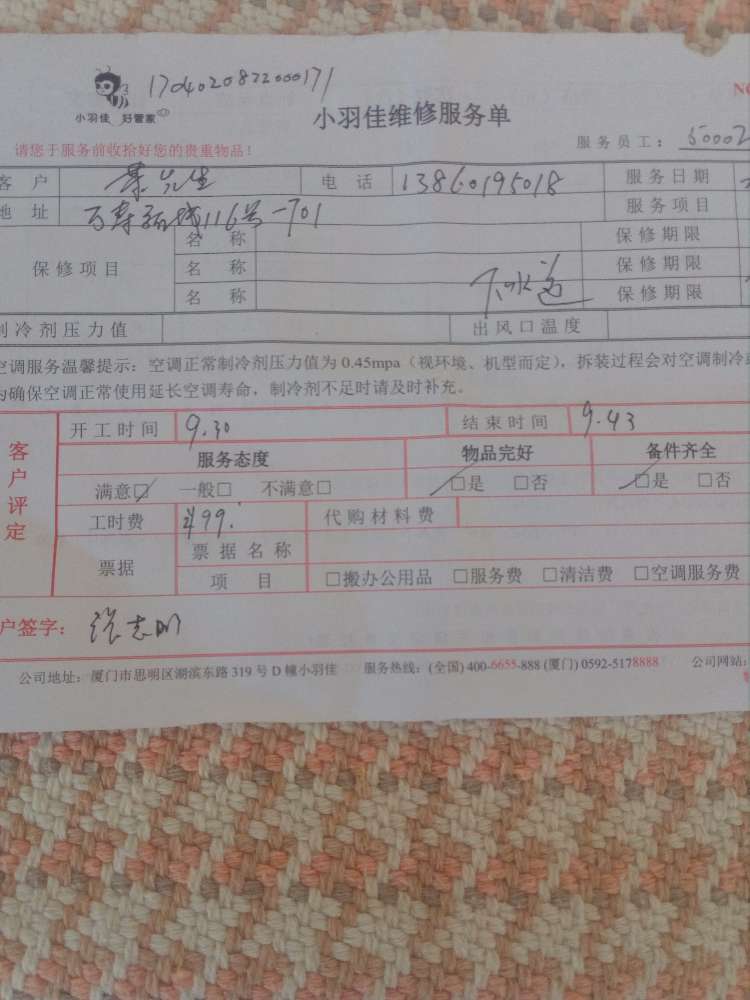 170402082200017１
小羽佳 好管家
小羽佳维修服务单
NO
请您于服务前收拾好您的贵重物品！
服务员工： 50002
客 户 先生 电 话 13860195018 服务日期
地 址 万寿 116号-701 服务项目
保修项目 名 称 保修期限
名 称 下水道 保修期限
名 称 保修期限
制冷剂压力值 出风口温度
空调服务温馨提示：空调正常制冷剂压力值为 0.45mpa（视环境、机型而定），拆装过程会对空调制冷
为确保空调正常使用延长空调寿命，制冷剂不足时请及时补充。
客户评定
开工时间 9.30 结束时间 9.43
服务态度 物品完好 备件齐全
满意☑ 一般□ 不满意□ ☑是 □否 ☑是 □否
工时费 ¥99. 代购材料费
票据 票据名称
项 目 □搬办公用品 □服务费 □清洁费 □空调服务费
户签字： 张志明
公司地址：厦门市思明区湖滨东路 319 号 D 幢小羽佳 服务热线：(全国) 400-6655-888 (厦门) 0592-5178888 公司网站：